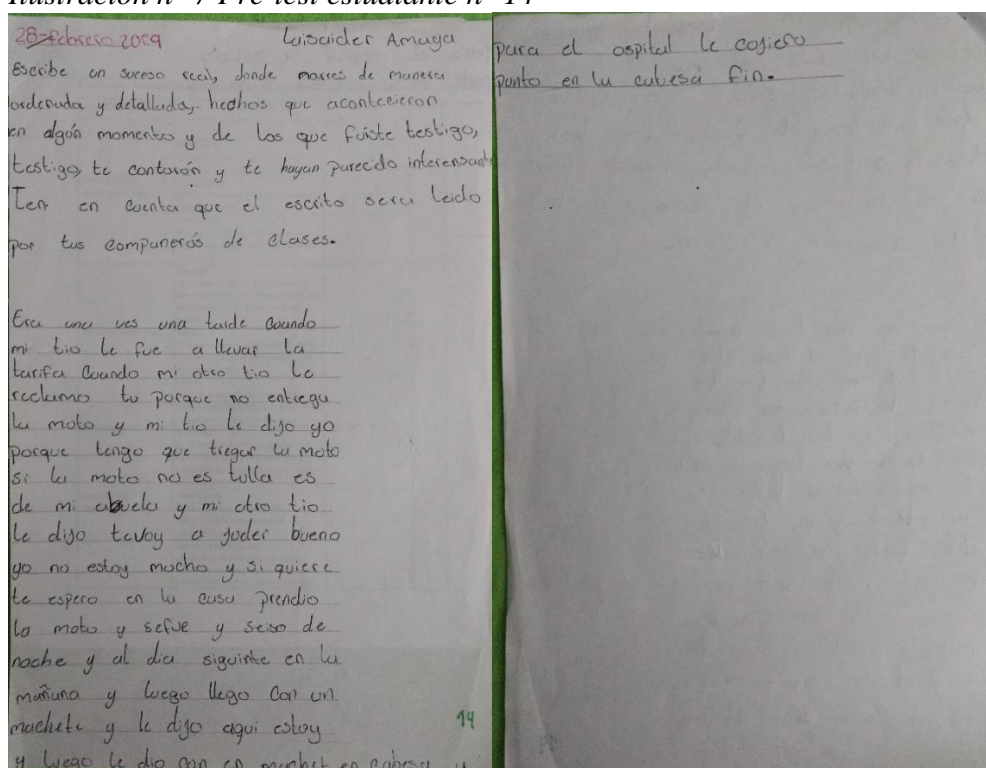 Ilustración n° 7 Pre-test estudiante n° 14
28-febrero 2019
Luiscider Amaya
Escribe un suceso real, donde narres de manera
ordenada y detallada, hechos que acontecieron
en algón momento y de los que fuiste testigo,
testigo, te contarón y te hayan parecido interensante
Ten en cuenta que el escrito sera leido
por tus compañeros de clases.
Era una ves una tarde Cuando
mi tio le fue a llevar La
tarifa Cuando mi otro tio le
reclamo tu porque no entrega
la moto y mi tio le dijo yo
porque tengo que tregar la moto
si la moto no es tulla es
de mi abuela y mi otro tio
le dijo tevoy a joder bueno
yo no estoy mocho y si quiere
te espero en la casa prendio
la moto y sefue y seiso de
noche y al dia siguinte en la
mañana y luego llego con un
machete y le dijo aqui estoy
y luego le dio con en machet en cabesa y
14
para el ospital le cojiero
punto en la cabesa fin.